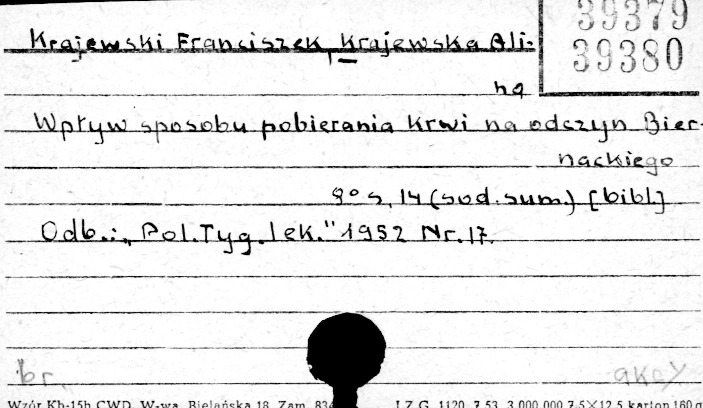 39379
39380
Krajewski Franciszek, Krajewska Ali-
na
Wpływ sposobu pobierania krwi na odczyn Bier-
nackiego
8° s, 14 (sod. sum.) [bibl.]
Odb.: "Pol. Tyg. lek." 1952 Nr. 17.
br.
Wzór Kh-15h CWD, W-wa, Bielańska 18, Zam. 834
LZG. 1120. 7.53. 3.000.000 7,5×12,5 karton 160 g